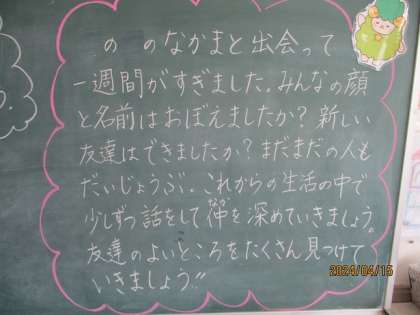 の のなかまと出会って
一週間がすぎました。みんなの顔
と名前はおぼえましたか？新しい
友達はできましたか？まだまだの人も
だいじょうぶ。これからの生活の中で
少しずつ話をして仲を深めていきましょう。
なか
友達のよいところをたくさん見つけて
いきましょう!!
2024/04/15